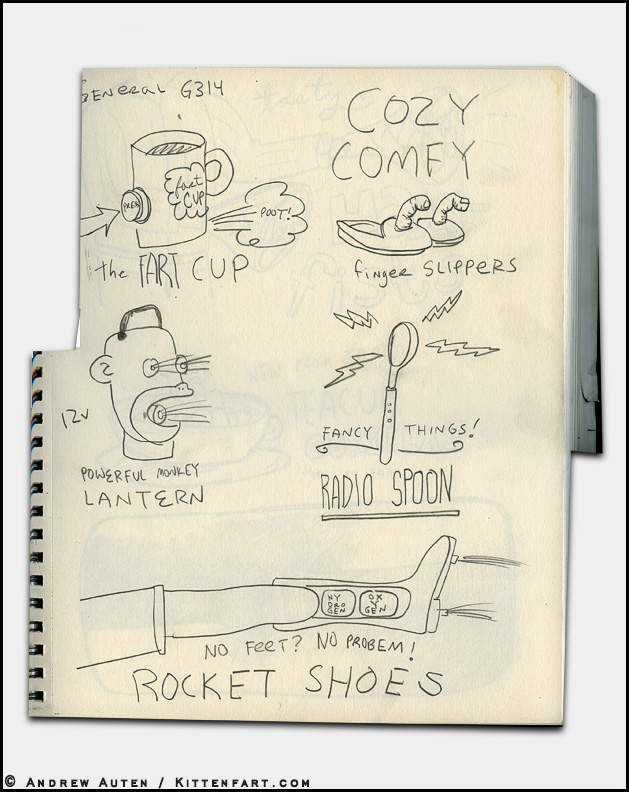 GENERAL G314
COZY
COMFY
fart
CUP
PRES
POOT!
the FART CUP
finger SLIPPERS
12V
POWERFUL MONKEY
LANTERN
FANCY THINGS!
RADIO SPOON
HY
DRO
GEN
OX
Y
GEN
NO FEET? NO PROBEM!
ROCKET SHOES
© ANDREW AUTEN / KITTENFART.COM